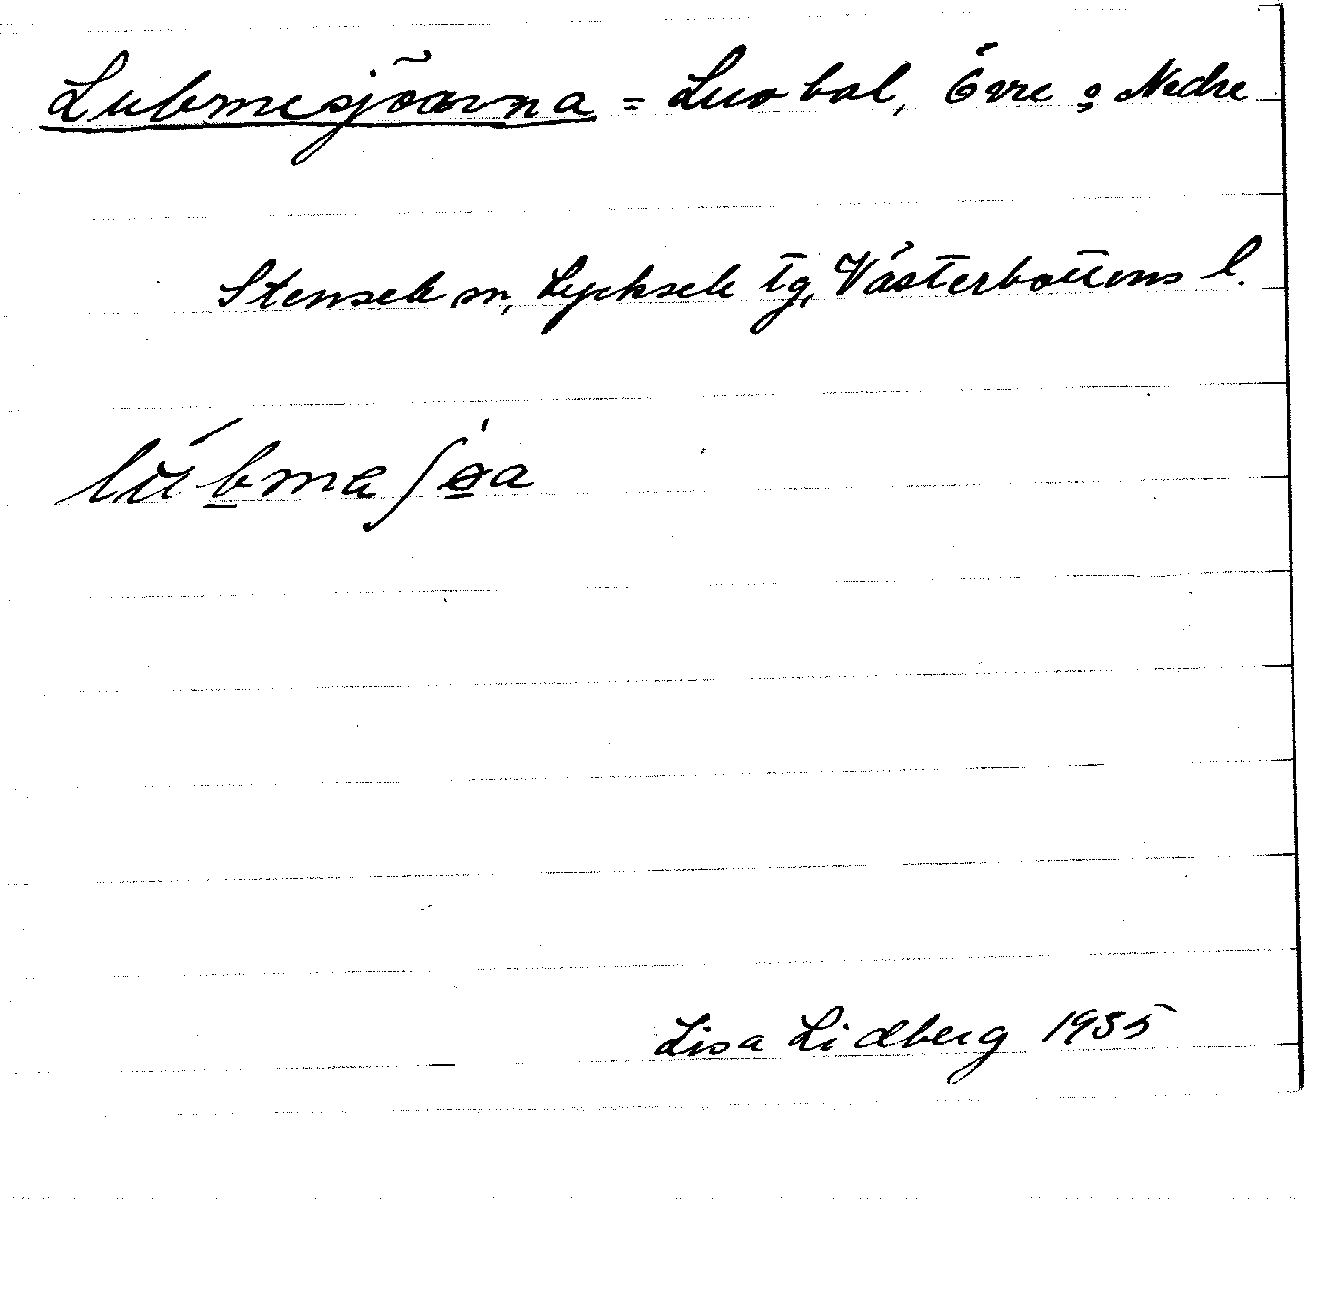 Lubmesjöarna = Luobal, Övre o Nedre
Stensele sn, Lycksele tg, Västerbottens l.
lúbmaʃö̀a
Lisa Lidberg 1935